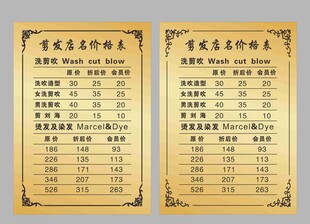 剪发店名价格表
洗剪吹 Wash cut blow
原价 折后价 会员价
洗吹造型 30 25 20
女洗剪吹 45 35 25
男洗剪吹 40 35 20
剪刘海 20 15 10
烫发及染发 Marcel&Dye
原价 折后价 会员价
186 148 93
226 135 113
286 171 143
346 207 173
526 315 263
剪发店名价格表
洗剪吹 Wash cut blow
原价 折后价 会员价
洗吹造型 30 25 20
女洗剪吹 45 35 25
男洗剪吹 40 35 20
剪刘海 20 15 10
烫发及染发 Marcel&Dye
原价 折后价 会员价
186 148 93
226 135 113
286 171 143
346 207 173
526 315 263